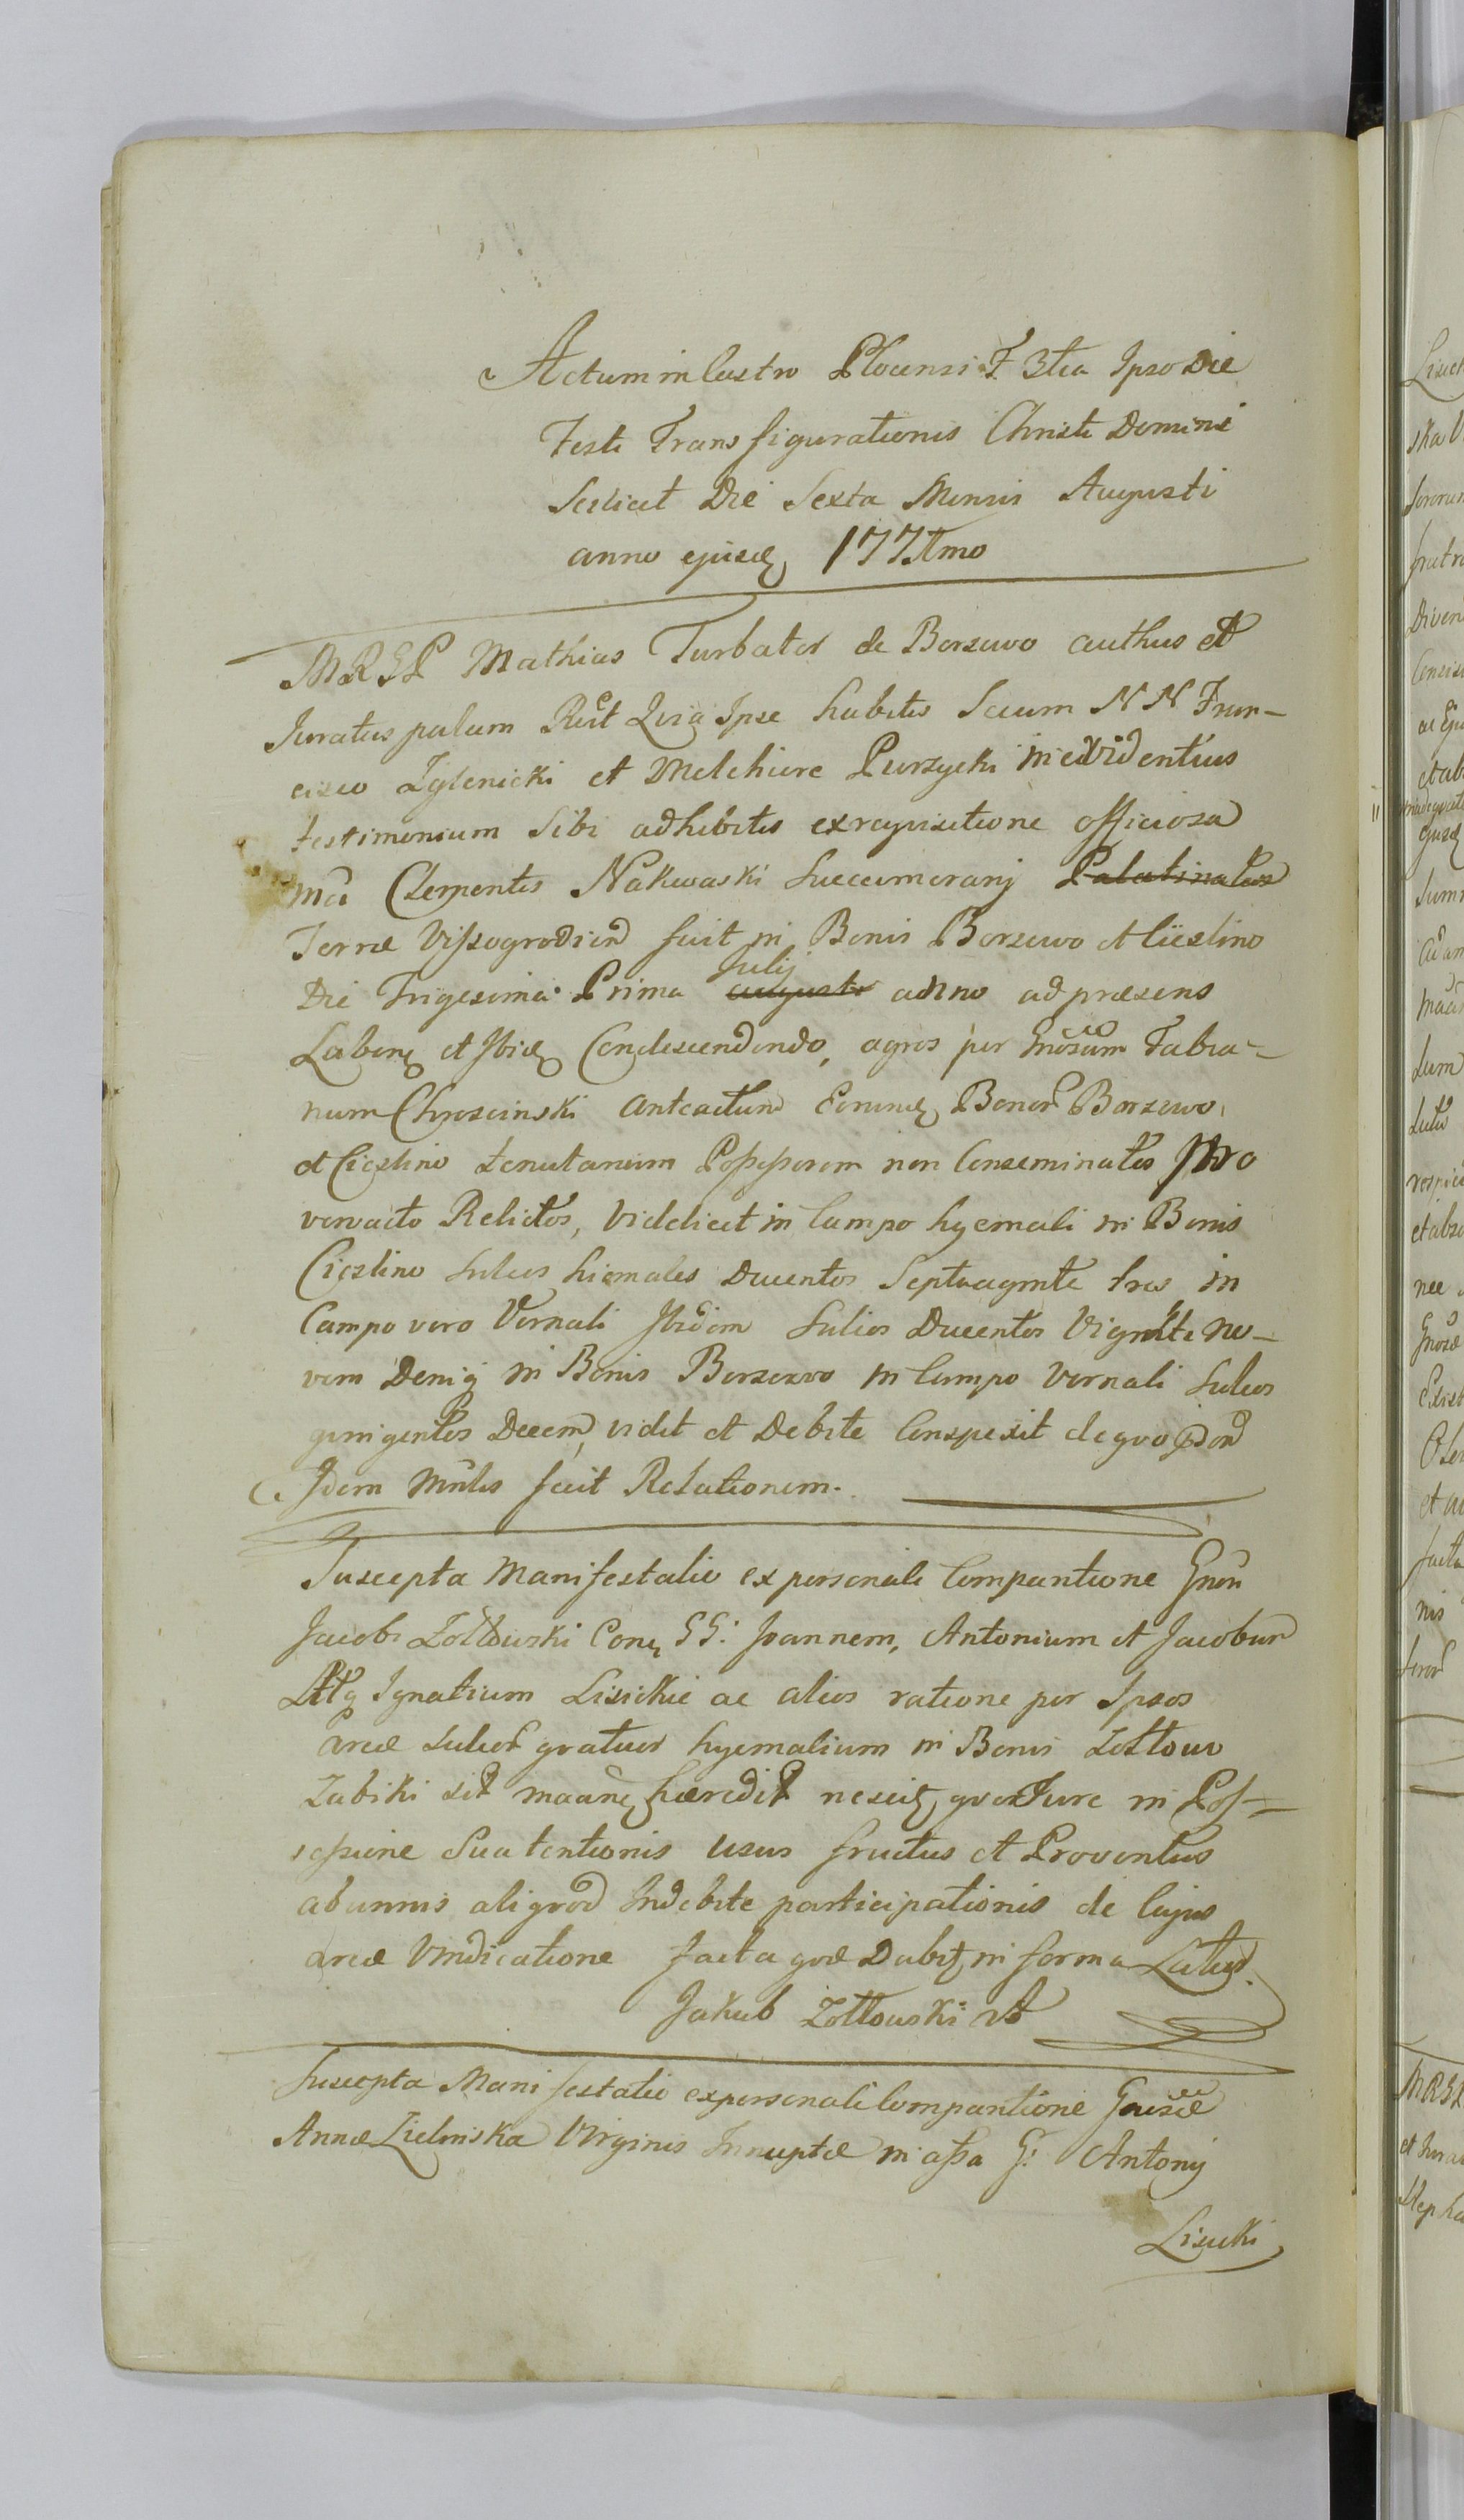 Actum in Castro Plocensi F. 3tia Ipso Die
Festi Transfigurationis Christi Domini
Scilicet Die Sexta Mensis Augusti
anno ejusd
MRGP Mathias Turbator de Borzewo authus et
Juratus palam Rclt Quia Ipse habitis Secum NN Fran-
cisco Zglenicki et Melchiore Purzycki in evidentius
testimonium Sibi adhibitis ex requisitione officiosa
Mci Clementis Nakwaski Succamerarij Palatinatus
Terræ Vissogrodien fuit in Bonis Borzewo et Cieslino
Die Trigesima Prima Julij augusti anno ad præsens
Laben et Ibid Condescendendo, agros per Gnosum Fabia-
num Chroscinski anteactum Eorund Bonor Borzewo
et Cieslino tenutarium Possessorem non Conseminatos Pro
vervacto Relictos, Videlicet in Campo hyemali in Bonis
Cieslino Sulcos hiemales Ducentos Septuaginta tres in
Campo vero Vernali Ibidem Sulcos Ducentos Viginti no-
vem Deniq in Bonis Borzewo in Campo Vernali Sulcos
quingentos Decem, vidit et Debite Conspexit de quo
Idem Mnlis fecit Relationem.
Suscepta Manifestatio ex personali Comparitione Gnsi
Jacobi Zołtowski Con GG: Joannem, Antonium et Jacobum
Atq Ignatium Lisickie ac alios ratione per Ipsos
circa Sulcor quatuor hyemalium in Bonis Zołtowo
Zabiki sit hæredit nescit quo Jure in Pos-
sessione Sua tentionis usus fructus et Proventus
ab annis aliquod Indebite participationis de Cujus
circa Vindicatione facta quæ Dabit in forma Latius.
Jakub Zołtowski
Suscepta Manifestatio ex personali Comparitione Gnosæ
Annæ Zielinska Virginis Innuptæ in assa G: Antonij
Lisicki